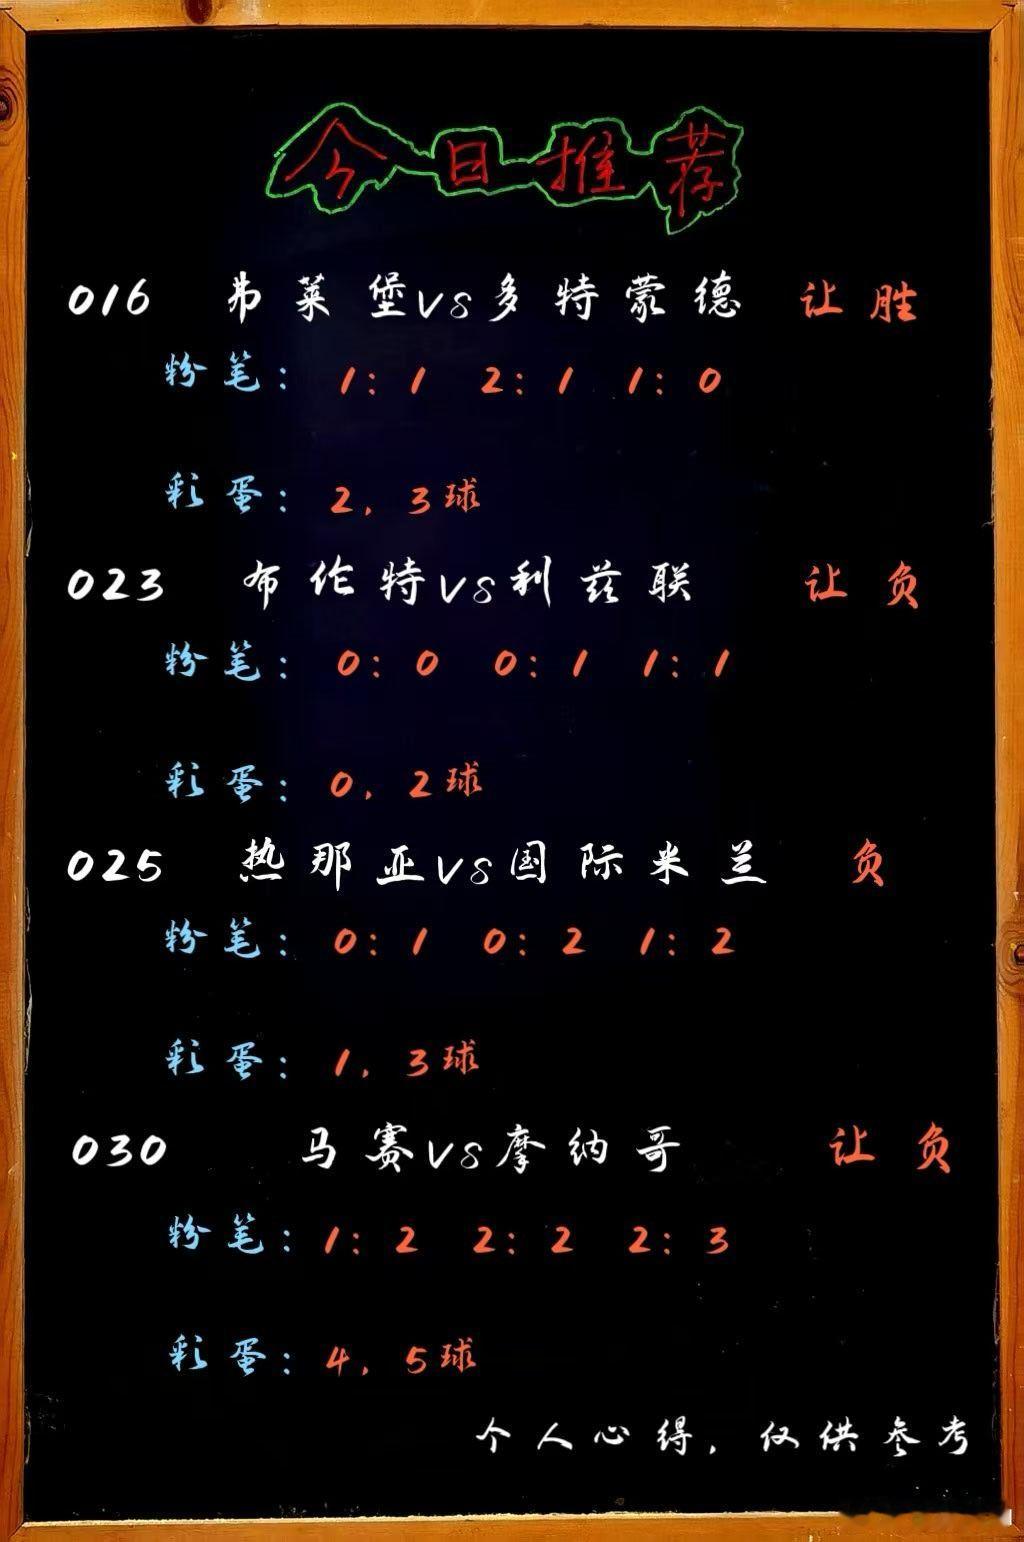 今日推荐
016 弗莱堡vs多特蒙德 让胜
粉笔: 1:1 2:1 1:0
彩蛋: 2, 3球
023 布伦特vs利兹联 让负
粉笔: 0:0 0:1 1:1
彩蛋: 0, 2球
025 热那亚vs国际米兰 负
粉笔: 0:1 0:2 1:2
彩蛋: 1, 3球
030 马赛vs摩纳哥 让负
粉笔: 1:2 2:2 2:3
彩蛋: 4, 5球
个人心得, 仅供参考